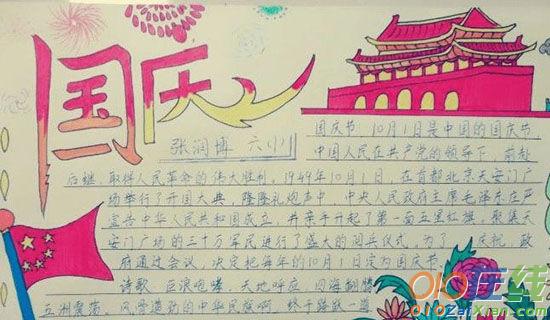 国庆
张润博 六(1)
国庆节，10月1日是中国的国庆节，
中国人民在共产党的领导下，前赴
后继，取得人民革命的伟大胜利，1949年10月1日，在首都北京天安门广
场举行了开国大典，隆隆礼炮声中，中央人民政府主席毛泽东庄严
宣告中华人民共和国成立，并亲手升起了第一面五星红旗，聚集天
安门广场的三十万军民进行了盛大的阅兵仪式，为了 庆祝，政
府通过会议，决定把每年的10月1日定为国庆节。
诗歌 巨浪咆哮，天地呼应，四海翻腾
五洲震荡，风雷激励的中华民族啊
在线
ZaiXian.com